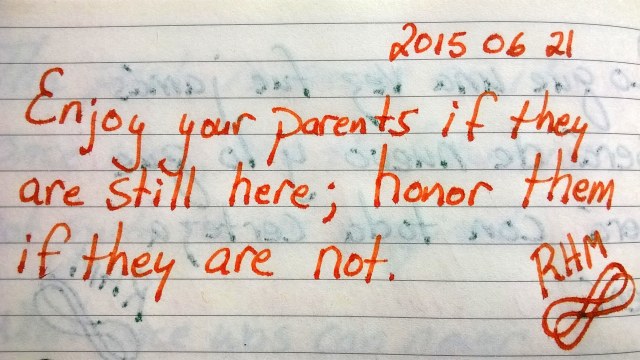 2015 06 21
Enjoy your parents if they
are still here; honor them
if they are not.
RHM